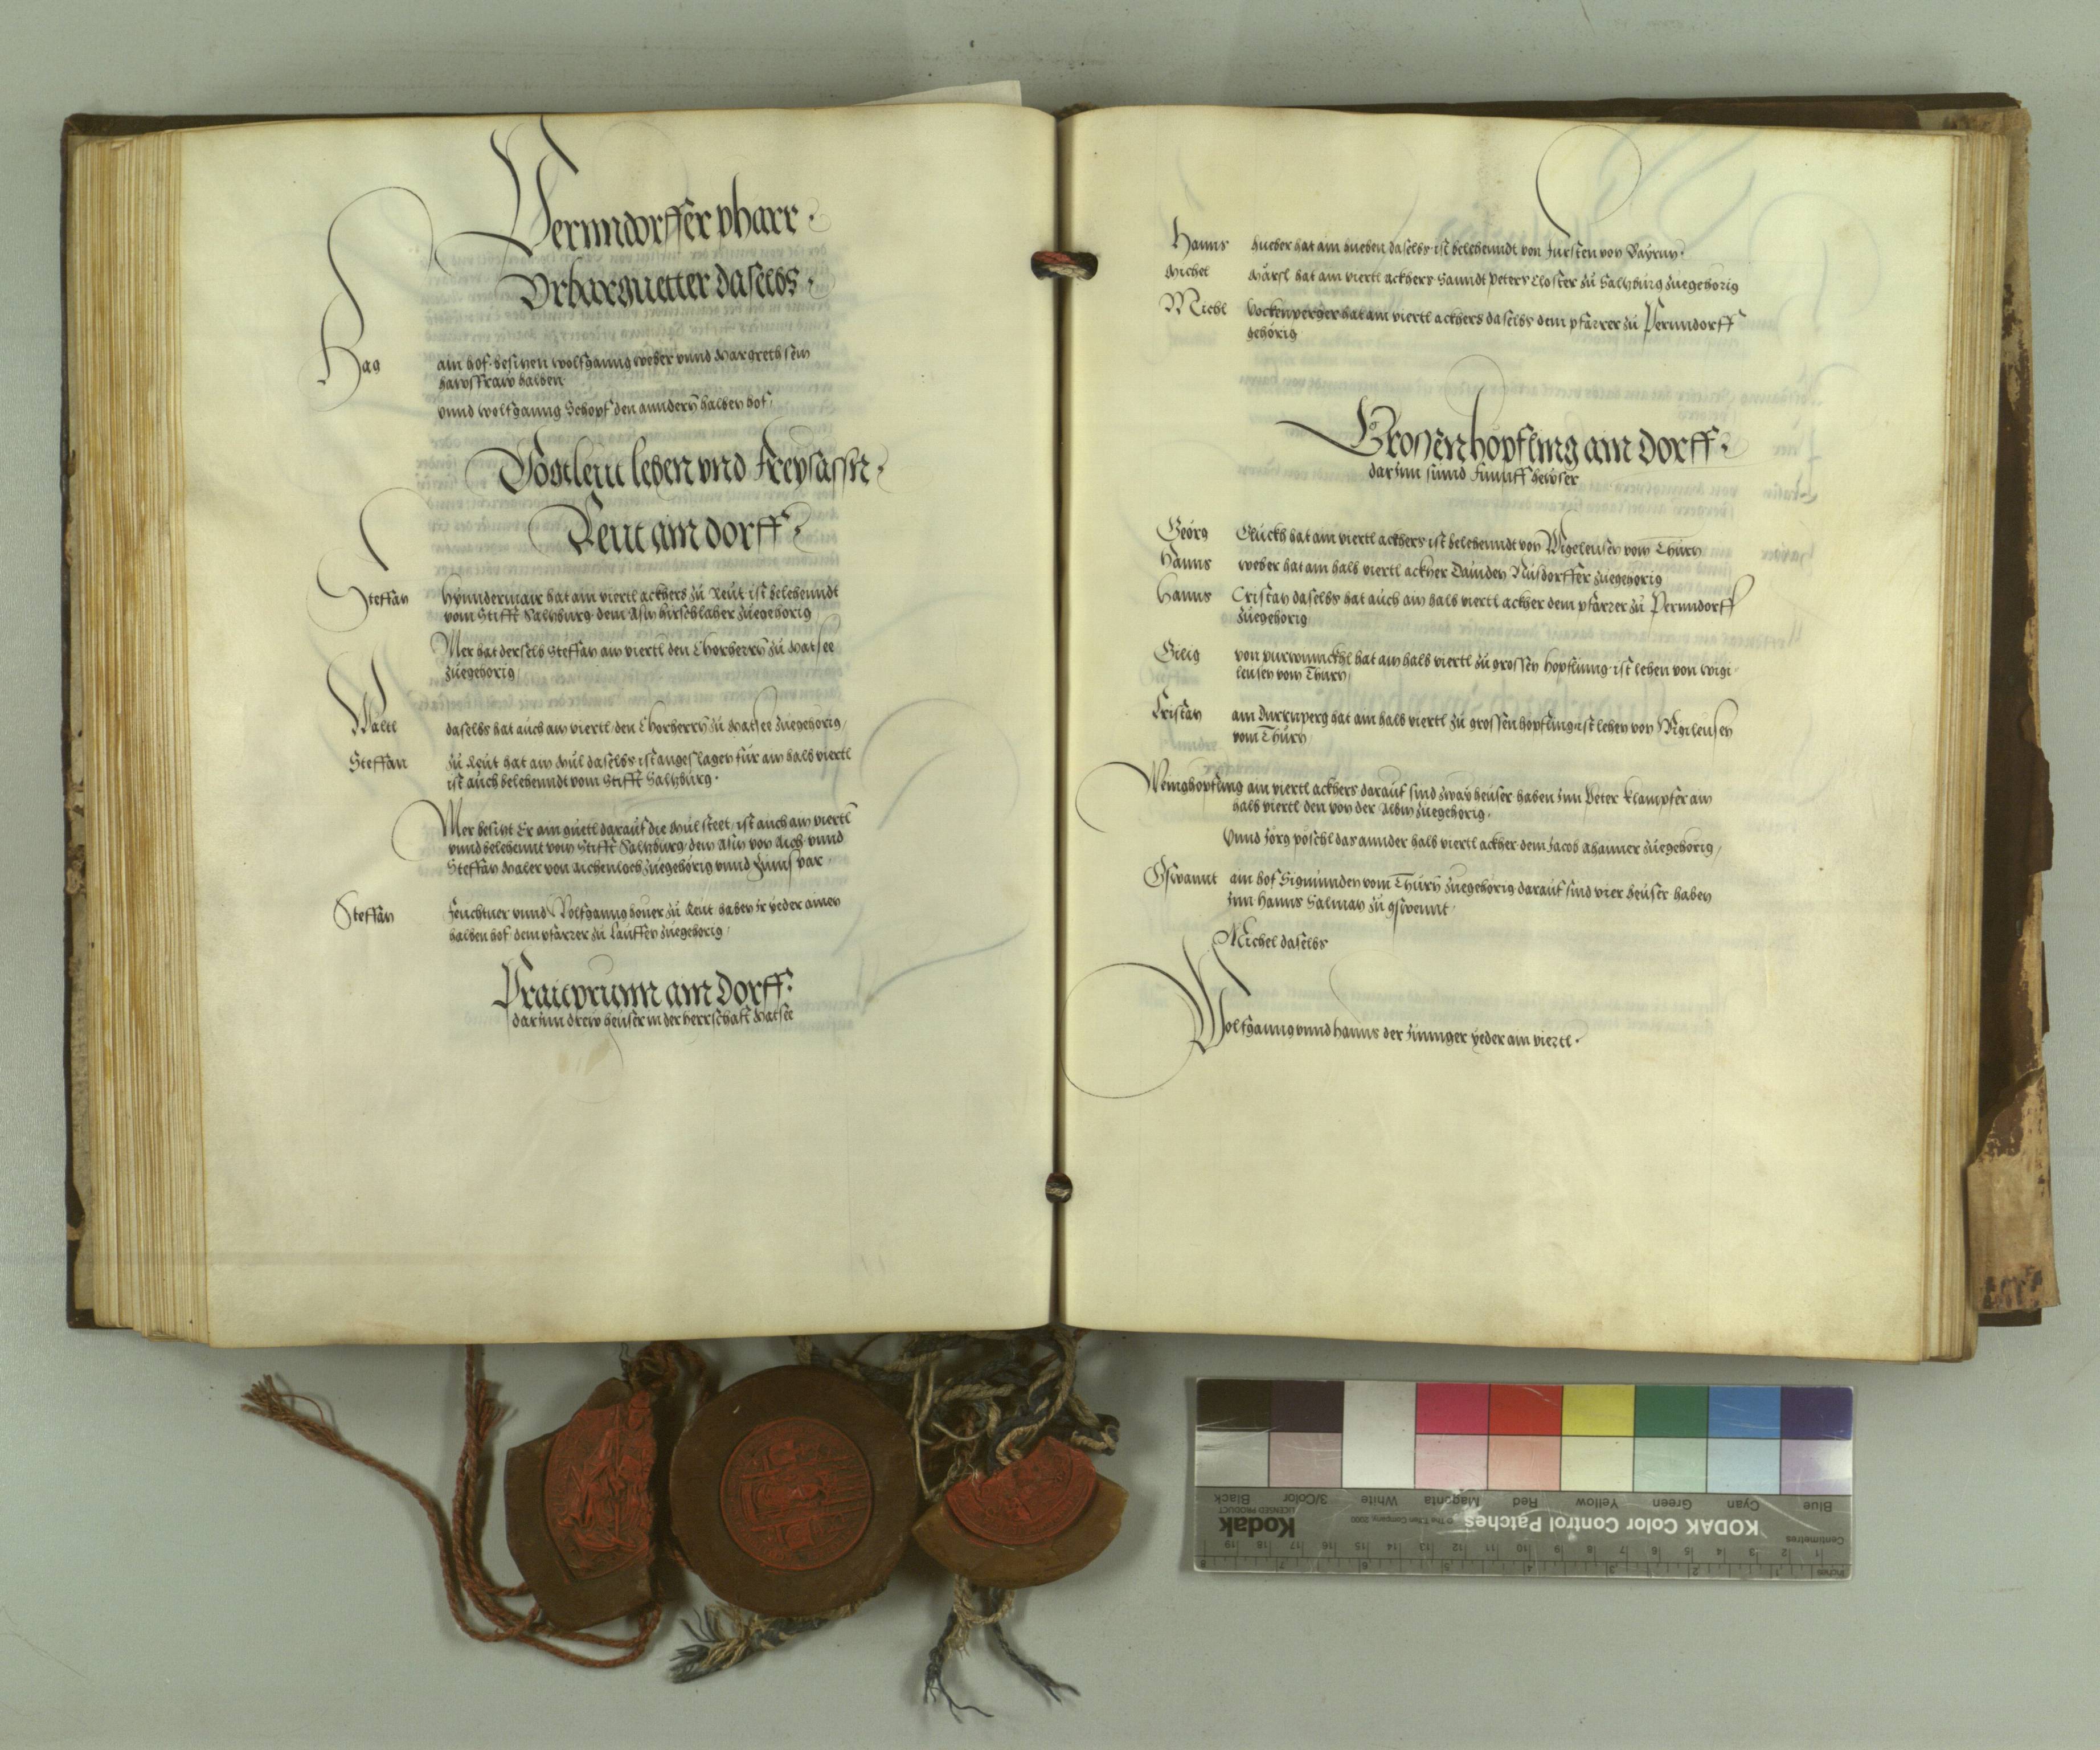 Pernndorffer pharr.
Vrbarguetter daselbs.
Hag am hof. besitzen wolfganng weber vnnd Margreth sein
hawsfraw halben
vnnd wolfganng Schöpf den anndern halben hof.
Vogtleut lehen vnd Freysassn.
Reut ain dorff.
Steffan hat ain viertl ackhers zu Reut ist belehenndt
vom Stifft Saltzburg dem Asm hirschlaher zuegehorig
Mer hat derselb Steffan ain viertl den Chorherrn zu Matsee
zuegehorig
Waltl daselbs hat auch ain viertl den Chorherrn zu Matsee zuegehorig
Steffan zu Reut hat ain Mül daselbs ist angeslagen für ain halb viertl
ist auch belehenndt vom Stifft Saltzburg.
Mer besitzt Er ain guetl darauf die Mül steet ist auch ain viertl
vnnd belehennt vom Stifft Saltzburg dem Asm von Aich vnnd
Steffan Maler von Aichenloch zuegehorig vnnd Zinns par
Steffan Feuchtner vnnd Wolfganng houer zu Reut haben ir yeder ainen
halben hof dem pfarrer zu Lauffen zuegehorig
Praitprunn ain Dorff.
darinn drew heuser in der herrschaft Matsee
Hanns hueber hat ain hueben daselbs ist belehenndt von Fursten von Bayrnn.
Michel Märtl hat ain viertl ackhers Sanndt Peters Closter zu Saltzburg zuegehorig
Michl Vockenperger hat ain viertl ackhers daselbs dem pfarrer zu Pernndorff
gehörig
Grossenhöpfling ain Dorff.
darinn sinnd Funnff hewser
Georg Gluckh hat ain viertl ackhers ist belehenndt von Wigeleusen vom Thurn
Hanns weber hat ain halb viertl ackher Nusdorffer zuegehorig
Hanns Cristan daselbs hat auch ain halb viertl ackher dem pfarrer zu Pernndorff
zuegehorig
Gilig von hat ain halb viertl zu grossen höpflinng ist lehen von wigi
leusen vom Thurn
Cristan am Durrnperg hat ain halb viertl zu grossenhöpfling ist lehen von Wigileusen
vom Thurn
Wenighöpfling ain viertl ackhers darauf sind zway heuser haben Inn Peter Klampfer ain
halb viertl den von der Albm zuegehorig.
Vnnd Jorg pöschl das annder halb viertl ackher dem Jacob zuegehorig
Gswannt ain hof Sigmunden vom Thurn zuegehorig darauf sind vier heuser haben
Inn Hanns Salman zu gswennt
Michel daselbs
Wolfganng vnnd Hanns der yeder ain viertl.
Blue
Cyan
Green
Yellow
Red
Magenta
White
3/Color
Black
KODAK Color Control Patches
Kodak
LICENSED PRODUCT
© The Tiffen Company, 2000
Centimetres
1 2 3 4 5 6 7 8 9 10 11 12 13 14 15 16 17 18 19
Inches
1 2 3 4 5 6 7 8